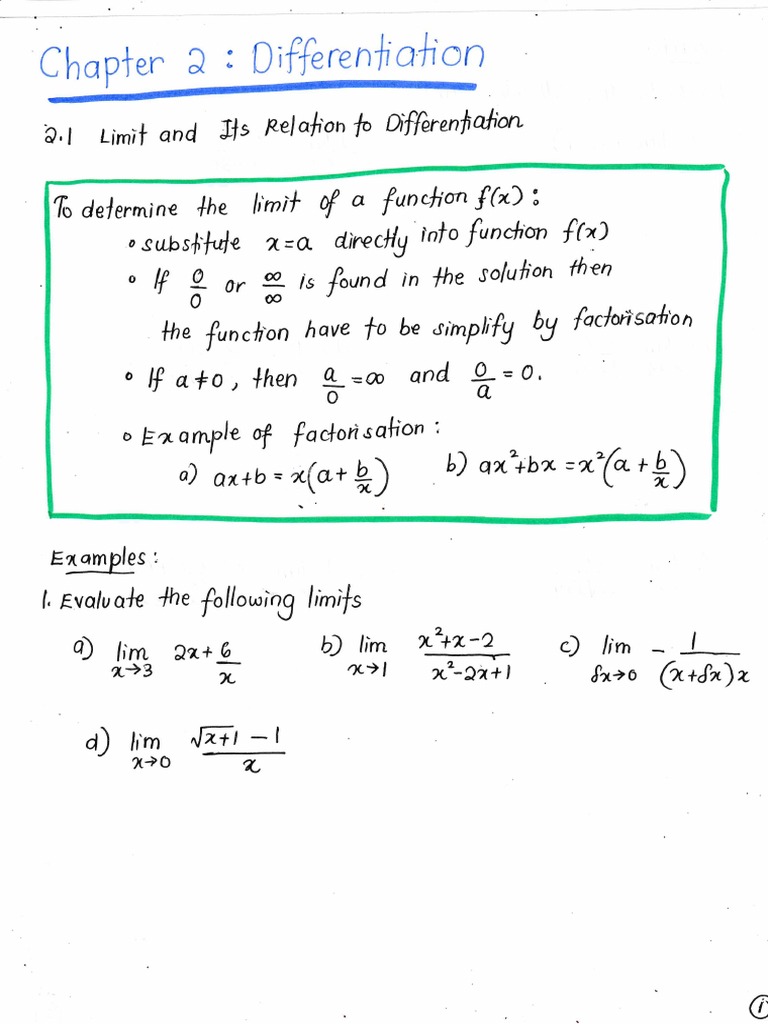 Chapter 2 : Differentiation
2.1 Limit and Its Relation to Differentiation
To determine the limit of a function f(x) :
• substitute x=a directly into function f(x)
• If 0/0 or ∞/∞ is found in the solution then
the function have to be simplify by factorisation
• If a≠0, then a/0 = ∞ and 0/a = 0.
• Example of factorisation :
a) ax+b = x(a + b/x) b) ax²+bx = x²(a + b/x)
Examples :
1. Evaluate the following limits
a) lim x→3 2x + 6/x b) lim x→1 (x²+x-2)/(x²-2x+1) c) lim δx→0 - 1/((x+δx)x)
d) lim x→0 (√(x+1) - 1)/x
1